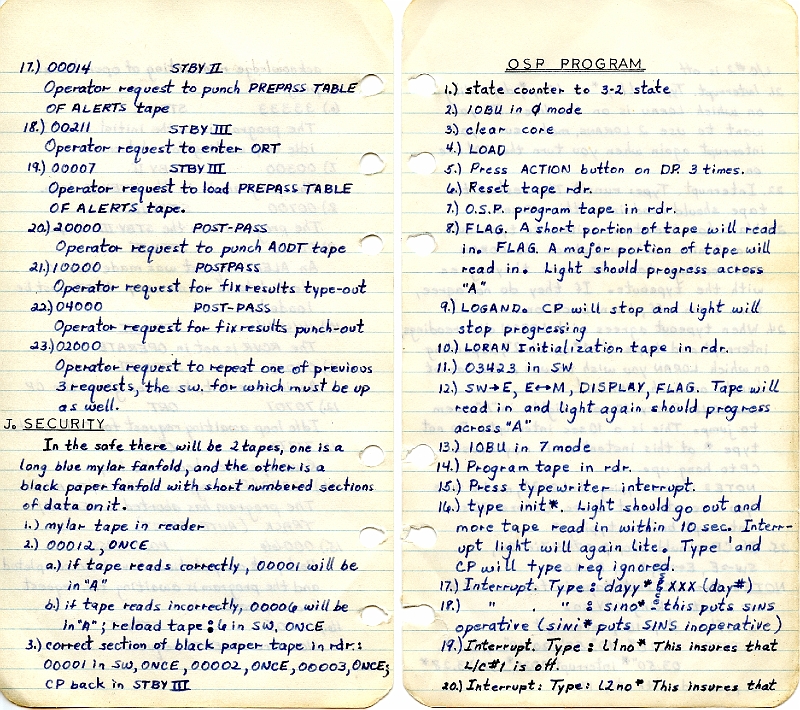 17.) 00014 STBY II
Operator request to punch PREPASS TABLE
OF ALERTS tape
18.) 00211 STBY III
Operator request to enter ORT
19.) 00007 STBY III
Operator request to load PREPASS TABLE
OF ALERTS tape.
20.) 20000 POST-PASS
Operator request to punch AODT tape
21.) 10000 POSTPASS
Operator request for fix results type-out
22.) 04000 POST-PASS
Operator request for fix results punch-out
23.) 02000
Operator request to repeat one of previous
3 requests, the sw. for which must be up
as well.
J. SECURITY
In the safe there will be 2 tapes, one is a
long blue mylar fanfold, and the other is a
black paper fanfold with short numbered sections
of data on it.
1.) mylar tape in reader
2.) 00012, ONCE
a.) if tape reads correctly, 00001 will be
in "A"
b.) if tape reads incorrectly, 00006 will be
in "A"; reload tape; 6 in SW, ONCE
3.) correct section of black paper tape in rdr:
00001 in SW, ONCE, 00002, ONCE, 00003, ONCE;
CP back in STBY III
OSP PROGRAM
1.) state counter to 3-2 state
2.) IOBU in Ø mode
3.) clear core
4.) LOAD
5.) Press ACTION button on DP 3 times.
6.) Reset tape rdr.
7.) O.S.P. program tape in rdr.
8.) FLAG. A short portion of tape will read
in. FLAG. A major portion of tape will
read in. Light should progress across
"A"
9.) LOGAND. CP will stop and light will
stop progressing
10.) LORAN Initialization tape in rdr.
11.) 03423 in SW
12.) SW→E, E↔M, DISPLAY, FLAG. Tape will
read in and light again should progress
across "A"
13.) IOBU in 7 mode
14.) Program tape in rdr.
15.) Press typewriter interrupt.
16.) type init*. Light should go out and
more tape read in within 10 sec. Interr-
upt light will again lite. Type ' and
CP will type req ignored.
17.) Interrupt. Type: dayy* & XXX (day#)
18.) " . " : sino* : this puts SINS
operative (sini* puts SINS inoperative)
19.) Interrupt. Type: l1no* This insures that
L/C#1 is off.
20.) Interrupt: Type: l2no* This insures that